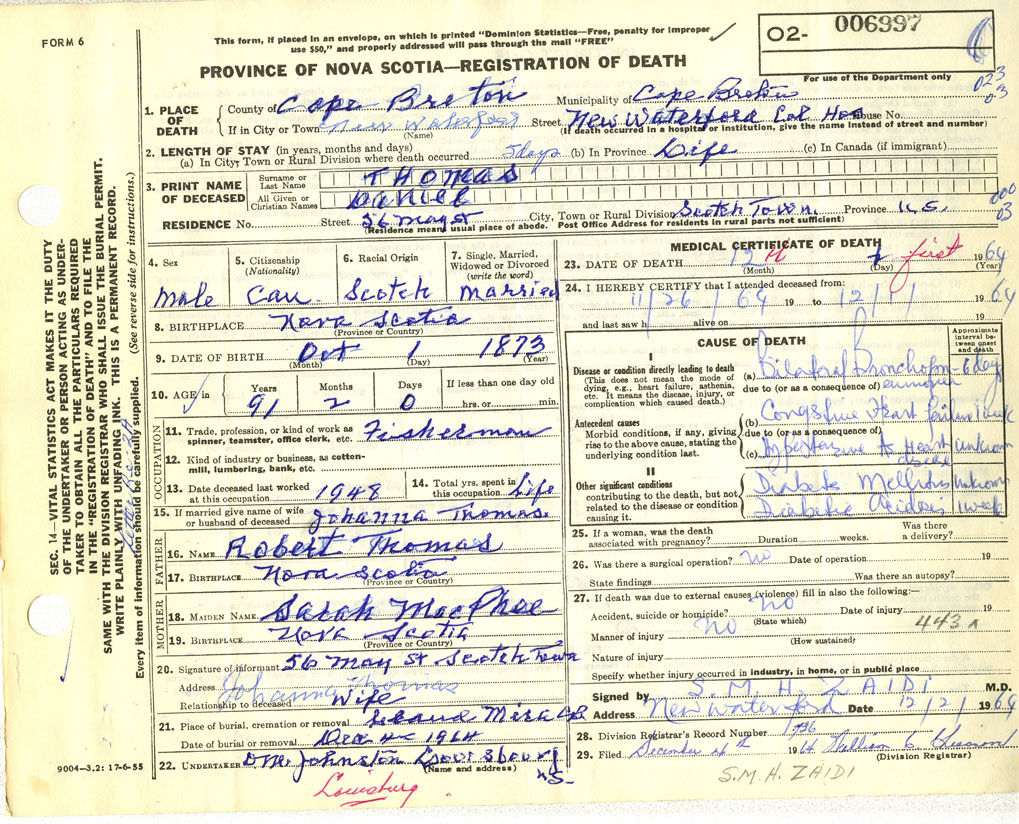 FORM 6
This form, if placed in an envelope, on which is printed "Dominion Statistics—Free, penalty for improper
use $50," and properly addressed will pass through the mail "FREE"
O2- 006997
PROVINCE OF NOVA SCOTIA—REGISTRATION OF DEATH
For use of the Department only
023
03
1. PLACE OF DEATH
County of Cape Breton Municipality of Cape Breton
If in City or Town New Waterford Street New Waterford Col Hos House No.
(Name) (If death occurred in a hospital or institution, give the name instead of street and number)
2. LENGTH OF STAY (in years, months and days)
(a) In City, Town or Rural Division where death occurred 5 days (b) In Province Life (c) In Canada (if immigrant)
3. PRINT NAME OF DECEASED
Surname or Last Name THOMAS
All Given or Christian Names Daniel
000
03
RESIDENCE No. Street 56 May St City, Town or Rural Division Scotch Town Province N.S.
(Residence means usual place of abode. Post Office Address for residents in rural parts not sufficient)
4. Sex
Male
5. Citizenship
(Nationality)
Can.
6. Racial Origin
Scotch
7. Single, Married, Widowed or Divorced
(write the word)
Married
8. BIRTHPLACE Nova Scotia
(Province or Country)
9. DATE OF BIRTH Oct 1 1873
(Month) (Day) (Year)
10. AGE
Years Months Days If less than one day old
91 2 0 hrs. or min.
OCCUPATION
11. Trade, profession, or kind of work as
spinner, teamster, office clerk, etc. Fisherman
12. Kind of industry or business, as cotton-
mill, lumbering, bank, etc.
13. Date deceased last worked
at this occupation 1948
14. Total yrs. spent in
this occupation Life
15. If married give name of wife
or husband of deceased Johanna Thomas.
FATHER
16. NAME Robert Thomas
17. BIRTHPLACE Nova Scotia
(Province or Country)
MOTHER
18. MAIDEN NAME Sarah MacPhee
19. BIRTHPLACE Nova Scotia
(Province or Country)
20. Signature of informant 56 May St Scotch Town
Address Johanna Thomas
Relationship to deceased Wife
21. Place of burial, cremation or removal Grand Mira CB
Date of burial or removal Dec 4 1964
22. UNDERTAKER D M. Johnston Louisbourg
(Name and address) N.S.
Louisburg.
9004—3.2: 17-6-55
MEDICAL CERTIFICATE OF DEATH
23. DATE OF DEATH 12 first 1964
(Month) (Day) (Year)
24. I HEREBY CERTIFY that I attended deceased from:
11/26/64 19 to 12/1/ 1964
and last saw h alive on 19
CAUSE OF DEATH
Approximate interval between onset and death
I
Disease or condition directly leading to death
(This does not mean the mode of
dying, e.g., heart failure, asthenia,
etc. It means the disease, injury, or
complication which caused death.)
(a) Bilateral Bronchopn- 6 days
due to (or as a consequence of) eumonia
Antecedent causes
Morbid conditions, if any, giving
rise to the above cause, stating the
underlying condition last.
(b) Congestive Heart failure 1 week
due to (or as a consequence of)
(c) Hypertensive Heart disease unknown
II
Other significant conditions
contributing to the death, but not
related to the disease or condition
causing it.
Diabetes Mellitus unknown
Diabetic Acidosis 1 week
25. If a woman, was the death
associated with pregnancy? Duration weeks. Was there a delivery?
26. Was there a surgical operation? No Date of operation 19
State findings Was there an autopsy?
27. If death was due to external causes (violence) fill in also the following:—
Accident, suicide or homicide? No Date of injury 19
(State which)
443 a
Manner of injury No
(How sustained)
Nature of injury
Specify whether injury occurred in industry, in home, or in public place
Signed by S. M. H. ZAIDI M.D.
Address New Waterford Date 12/2/ 1964
28. Division Registrar's Record Number 1936
29. Filed December 4th 1964 William C
(Division Registrar)
S.M.H. ZAIDI
SEC. 14—VITAL STATISTICS ACT MAKES IT THE DUTY
OF THE UNDERTAKER OR PERSON ACTING AS UNDER-
TAKER TO OBTAIN ALL THE PARTICULARS REQUIRED
IN THE "REGISTRATION OF DEATH" AND TO FILE THE
SAME WITH THE DIVISION REGISTRAR WHO SHALL ISSUE THE BURIAL PERMIT.
WRITE PLAINLY WITH UNFADING INK. THIS IS A PERMANENT RECORD.
Every item of information should be carefully supplied. (See reverse side for instructions.)